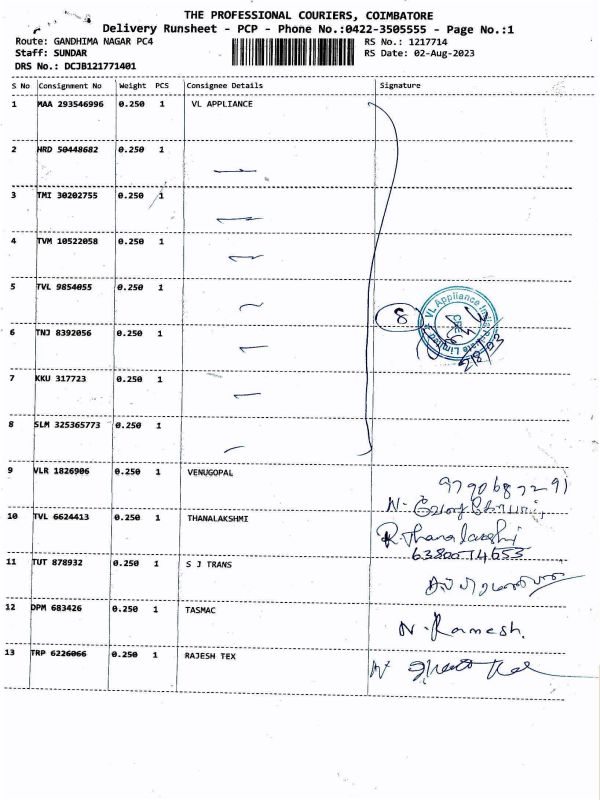 THE PROFESSIONAL COURIERS, COIMBATORE
Delivery Runsheet - PCP - Phone No.:0422-3505555 - Page No.:1
Route: GANDHIMA NAGAR PC4 RS No.: 1217714
Staff: SUNDAR RS Date: 02-Aug-2023
DRS No.: DCJB121771401
S No Consignment No Weight PCS Consignee Details Signature
1 MAA 293546996 0.250 1 VL APPLIANCE
2 HRD 50448682 0.250 1
3 TMI 30202755 0.250 1
4 TVM 10522058 0.250 1
5 TVL 9854055 0.250 1
8 VL Appliance
6 TNJ 8392056 0.250 1
7 KKU 317723 0.250 1
8 SLM 325365773 0.250 1
9 VLR 1826906 0.250 1 VENUGOPAL
10 TVL 6624413 0.250 1 THANALAKSHMI R.Thanalakshmi
6380014653
11 TUT 878932 0.250 1 S J TRANS
12 DPM 683426 0.250 1 TASMAC N.Ramesh.
13 TRP 6226066 0.250 1 RAJESH TEX